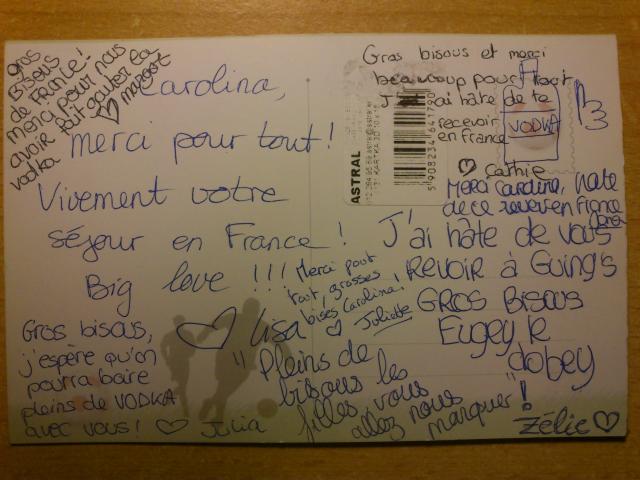 gros
Bisous
de France!
merci pour nous
avoir fait gouter la
vodka ♡ margot
Carolina,
merci pour tout!
Vivement votre
séjour en France!
Big love!!!
♡ Lisa
Gras bisous et merci
beaucoup pour tout
J'ai hâte de te
recevoir
en France
♡ Cathie
VODKA
<3
ASTRAL
KARTKA 3D
5 908234 641790
Merci Caroline, hate
de ce revoir en France
J'ai hâte de vous
revoir à Guing's
GROS BISOUS
Eugey le
dobey
Merci pour
tout, grosses
bises Carolina!
♡ Juliette
Gros bisous,
j'espère qu'on
pourra boire
pleins de VODKA
avec vous! ♡ Julia
"Pleins de
bisous les
filles, vous
allez nous
manquer"!
Zélie ♡